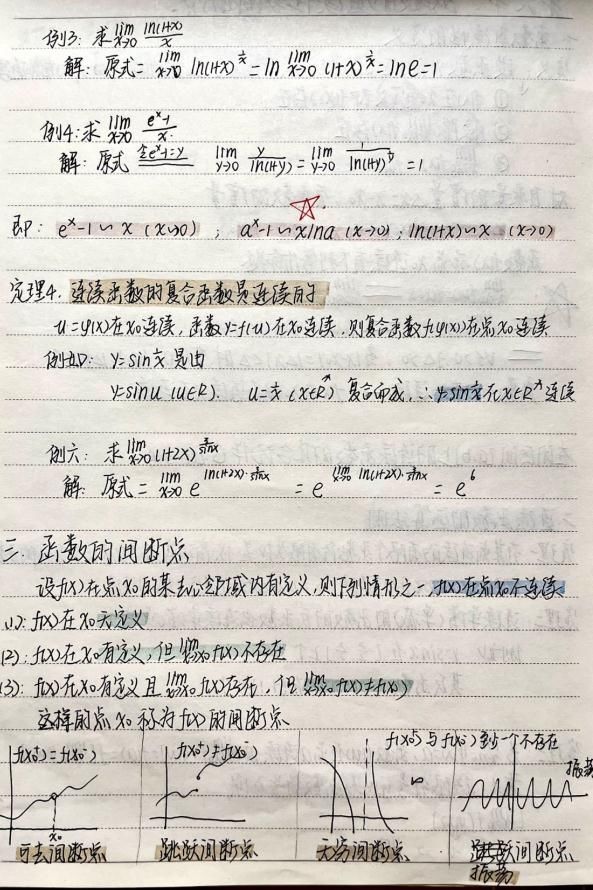 例3: 求 lim x→0 ln(1+x)/x
解: 原式 = lim x→0 ln(1+x)^(1/x) = ln lim x→0 (1+x)^(1/x) = ln e = 1
例4: 求 lim x→0 (e^x-1)/x
解: 原式 令e^x-1=y lim y→0 y/ln(1+y) = lim y→0 1/ln(1+y)^(1/y) = 1
即: e^x-1 ∽ x (x→0) ; a^x-1 ∽ xlna (x→0) ; ln(1+x) ∽ x (x→0)
定理4. 连续函数的复合函数是连续的
u=φ(x)在x0连续, 函数y=f(u)在x0连续, 则复合函数f(φ(x))在点x0连续
y=sin 1/x 是由
y=sinu (u∈R). u=1/x (x∈R*) 复合而成, ∴ y=sin 1/x 在x∈R*连续
例六: 求 lim x→0 (1+2x)^(3/sinx)
解: 原式 = lim x→0 e^(ln(1+2x)·3/sinx) = e^(lim x→0 ln(1+2x)·3/sinx) = e^6
三. 函数的间断点
设f(x)在点x0的某去心邻域内有定义, 则下列情形之一, f(x)在点x0不连续
(1): f(x)在x0无定义
(2): f(x)在x0有定义, 但 lim x→x0 f(x)不存在
(3): f(x)在x0有定义且 lim x→x0 f(x)存在, 但 lim x→x0 f(x)≠f(x0)
这样的点x0称为f(x)的间断点
f(x0⁺)=f(x0⁻) f(x0⁺)≠f(x0⁻) f(x0⁺)与f(x0⁻)至少一个不存在
振荡
x0 ∞
可去间断点 跳跃间断点 无穷间断点 间断点
振荡